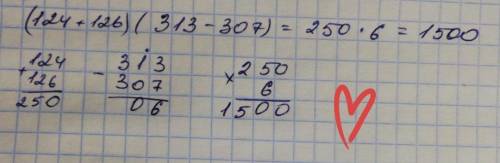 (124+126)(313-307) = 250·6 = 1500
+124 -313 ×250
126 307 6
250 06 1500